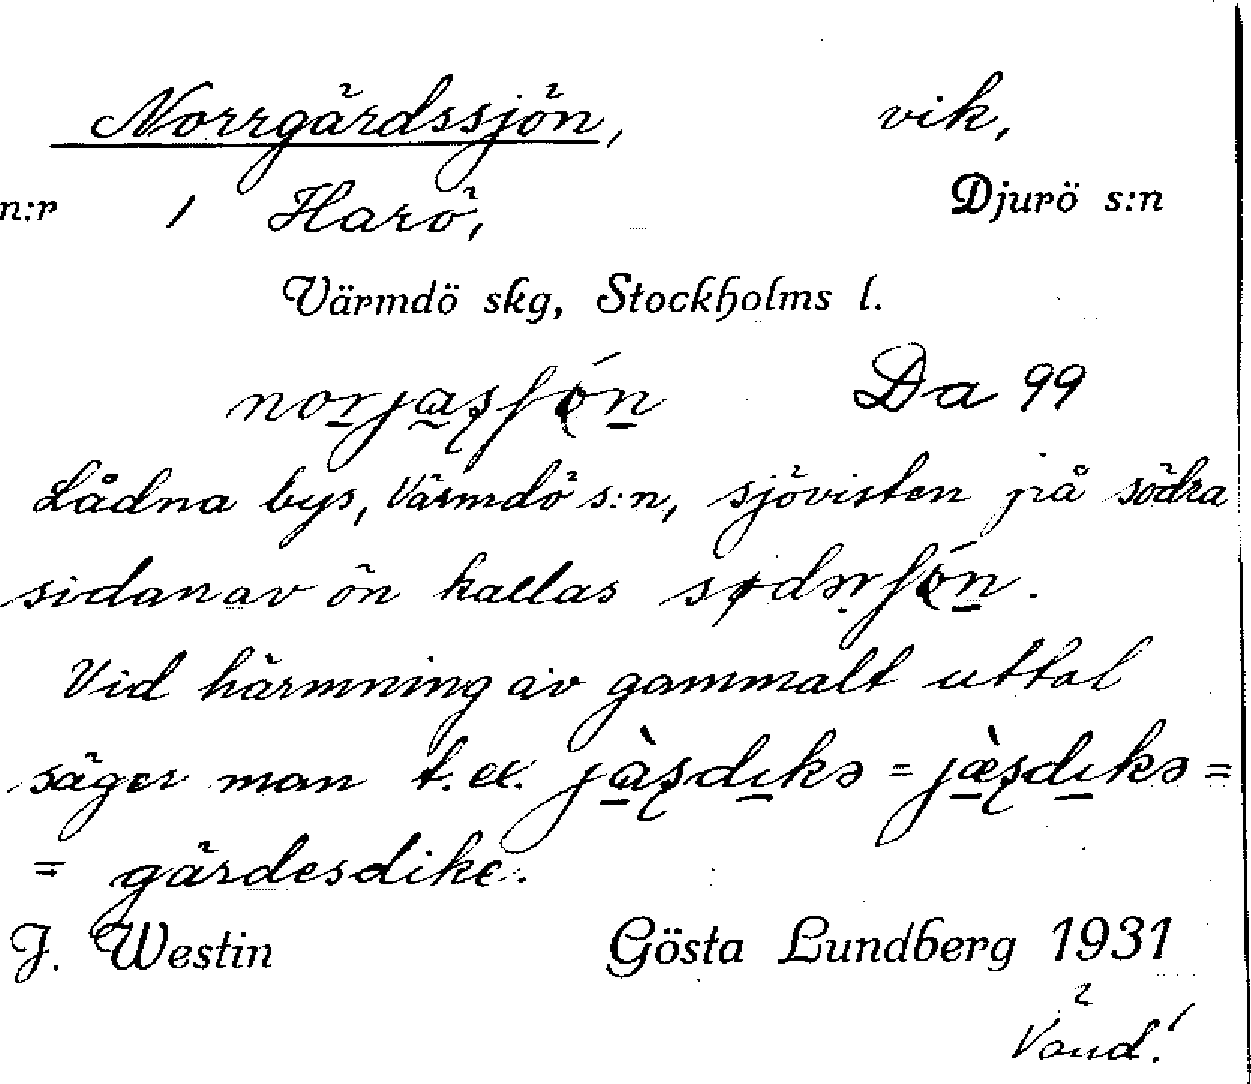 Norrgårdssjön, vik,
n:r 1 Harö, Djurö s:n
Värmdö skg, Stockholms l.
Da 99
Lådna bys, Värmdö s:n, sjövisten på södra
sidan av ön kallas
Vid härmning av gammalt uttal
säger man t. ex. jàṣdıkə = jæ̀ṣdıkə =
= gärdesdike.
J. Westin Gösta Lundberg 1931
Vänd!